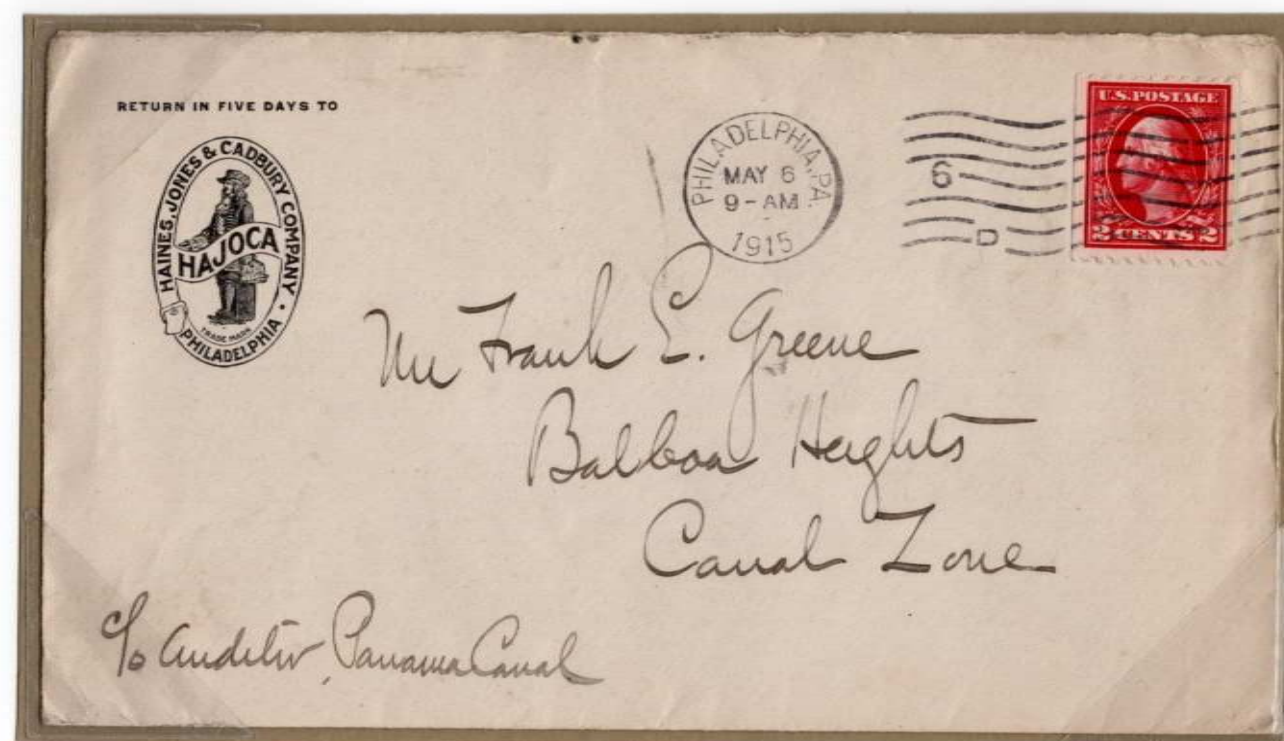 RETURN IN FIVE DAYS TO
HAINES, JONES & CADBURY COMPANY •
HAJOCA
TRADE MARK
PHILADELPHIA
PHILADELPHIA, PA.
MAY 6
9-AM
1915
6
D
U.S. POSTAGE
2 CENTS 2
Mr Frank E. Greene
Balboa Heights
Canal Zone
c/o Auditor, Panama Canal